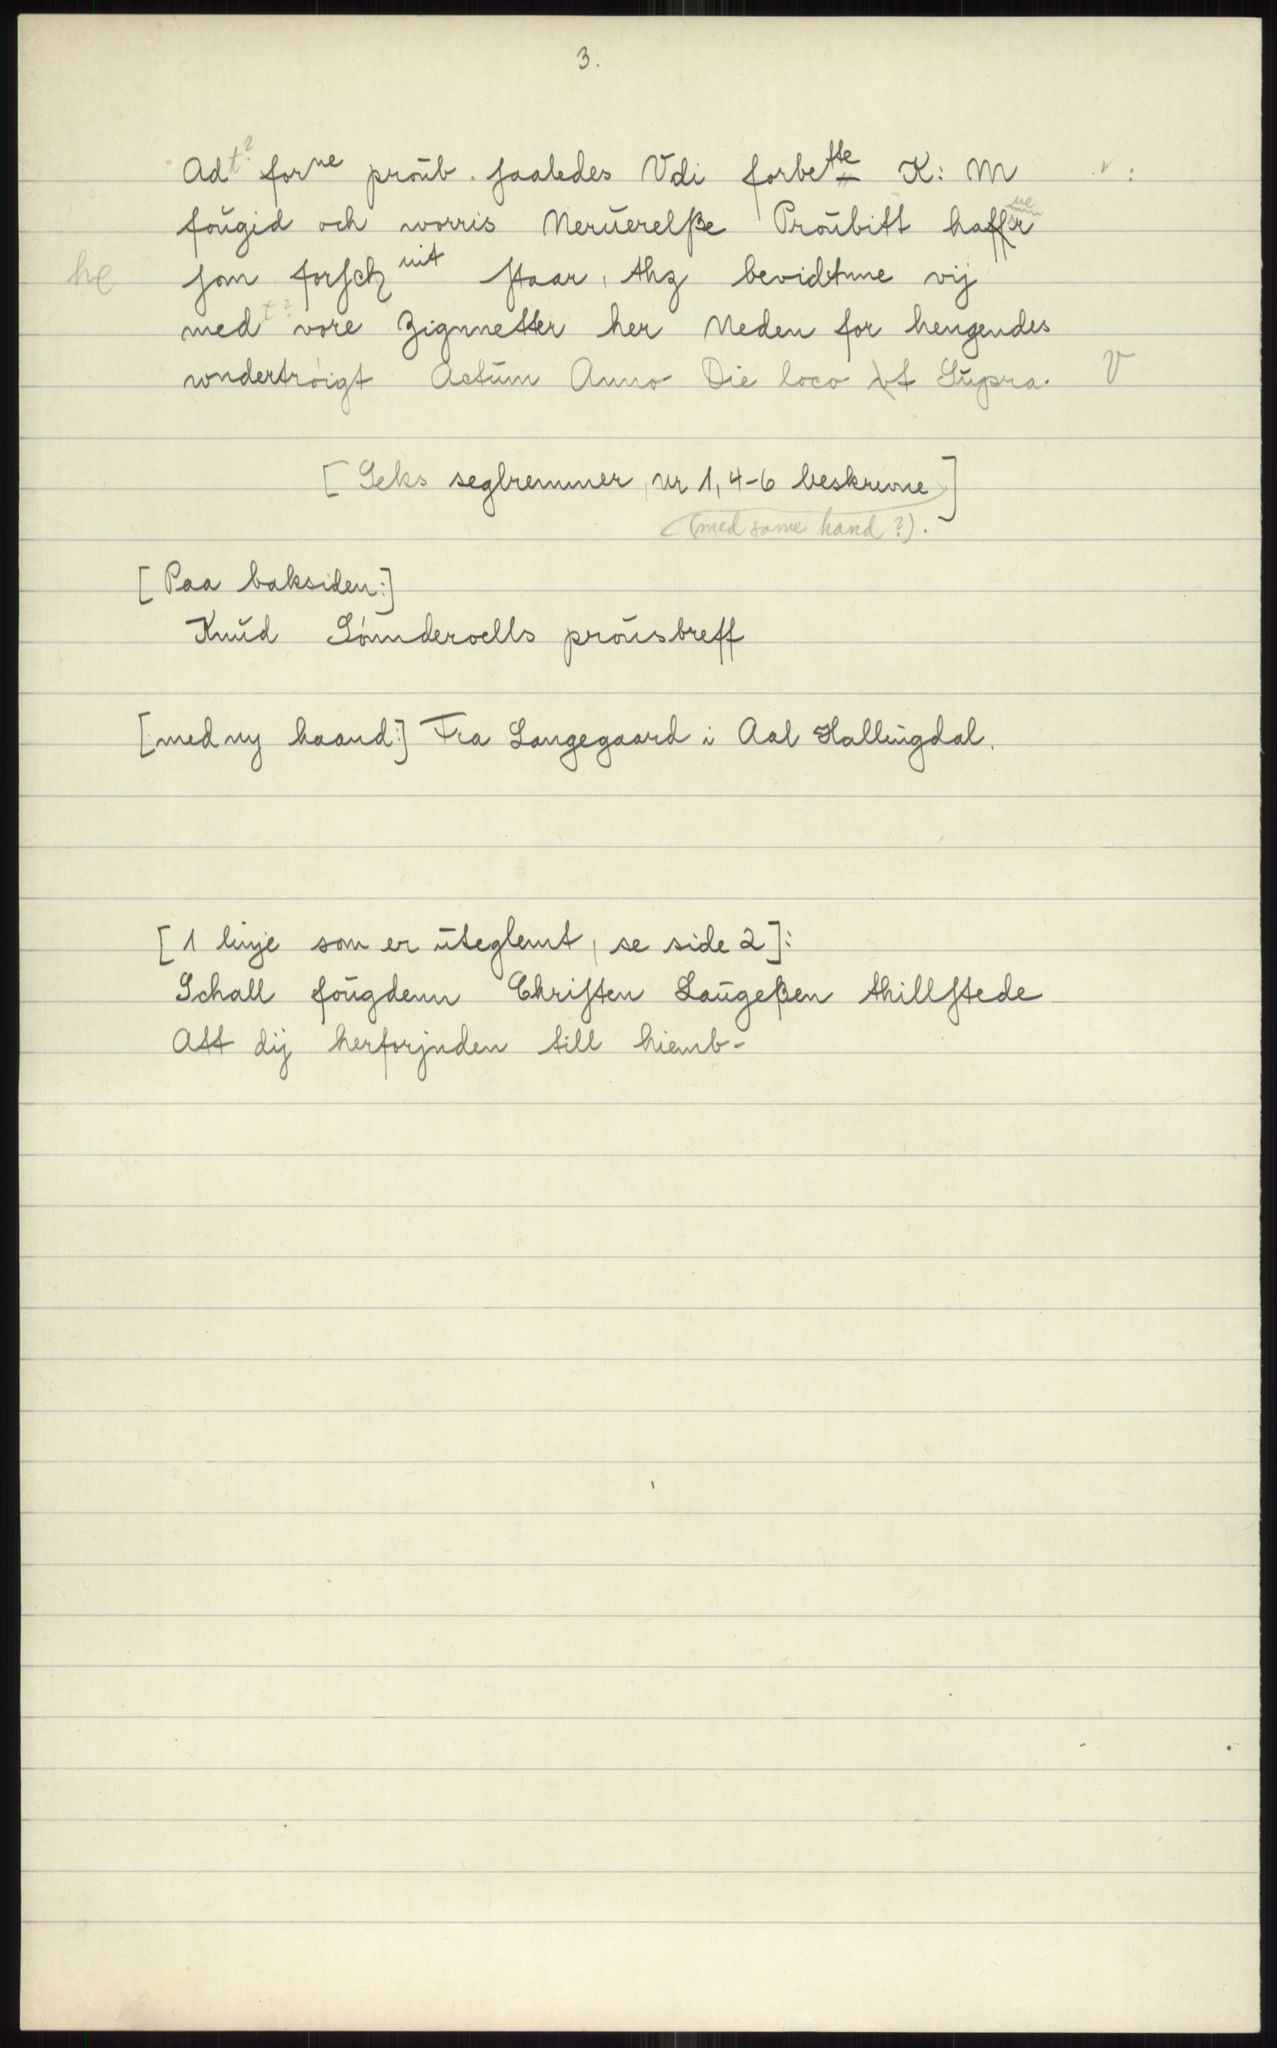 3.
Adt? forne proůb. saaledes Vdi forbete K: M
foůgid och worris Nerůerelße Proůbitt haffr
he som forsch nit staar, thz bevidtnne vij
med t? vore Zignnetter her Neden for hengendes
wndertröigt Actům Anno Die loco vt Sůpra. V
[Seks seglremmer, nr 1, 4-6 beskrevne]
(med same hand?).
[Paa baksiden:]
Knůd Sönnderoells proůsbreff
[med ny haand:] Fra Langegaard i Aal Hallingdal.
[1 linje som er ůteglemt, se side 2]:
Schall foůgdenn Christen Laůgeßen thillstede
Att dij herforjnden till hiemb-